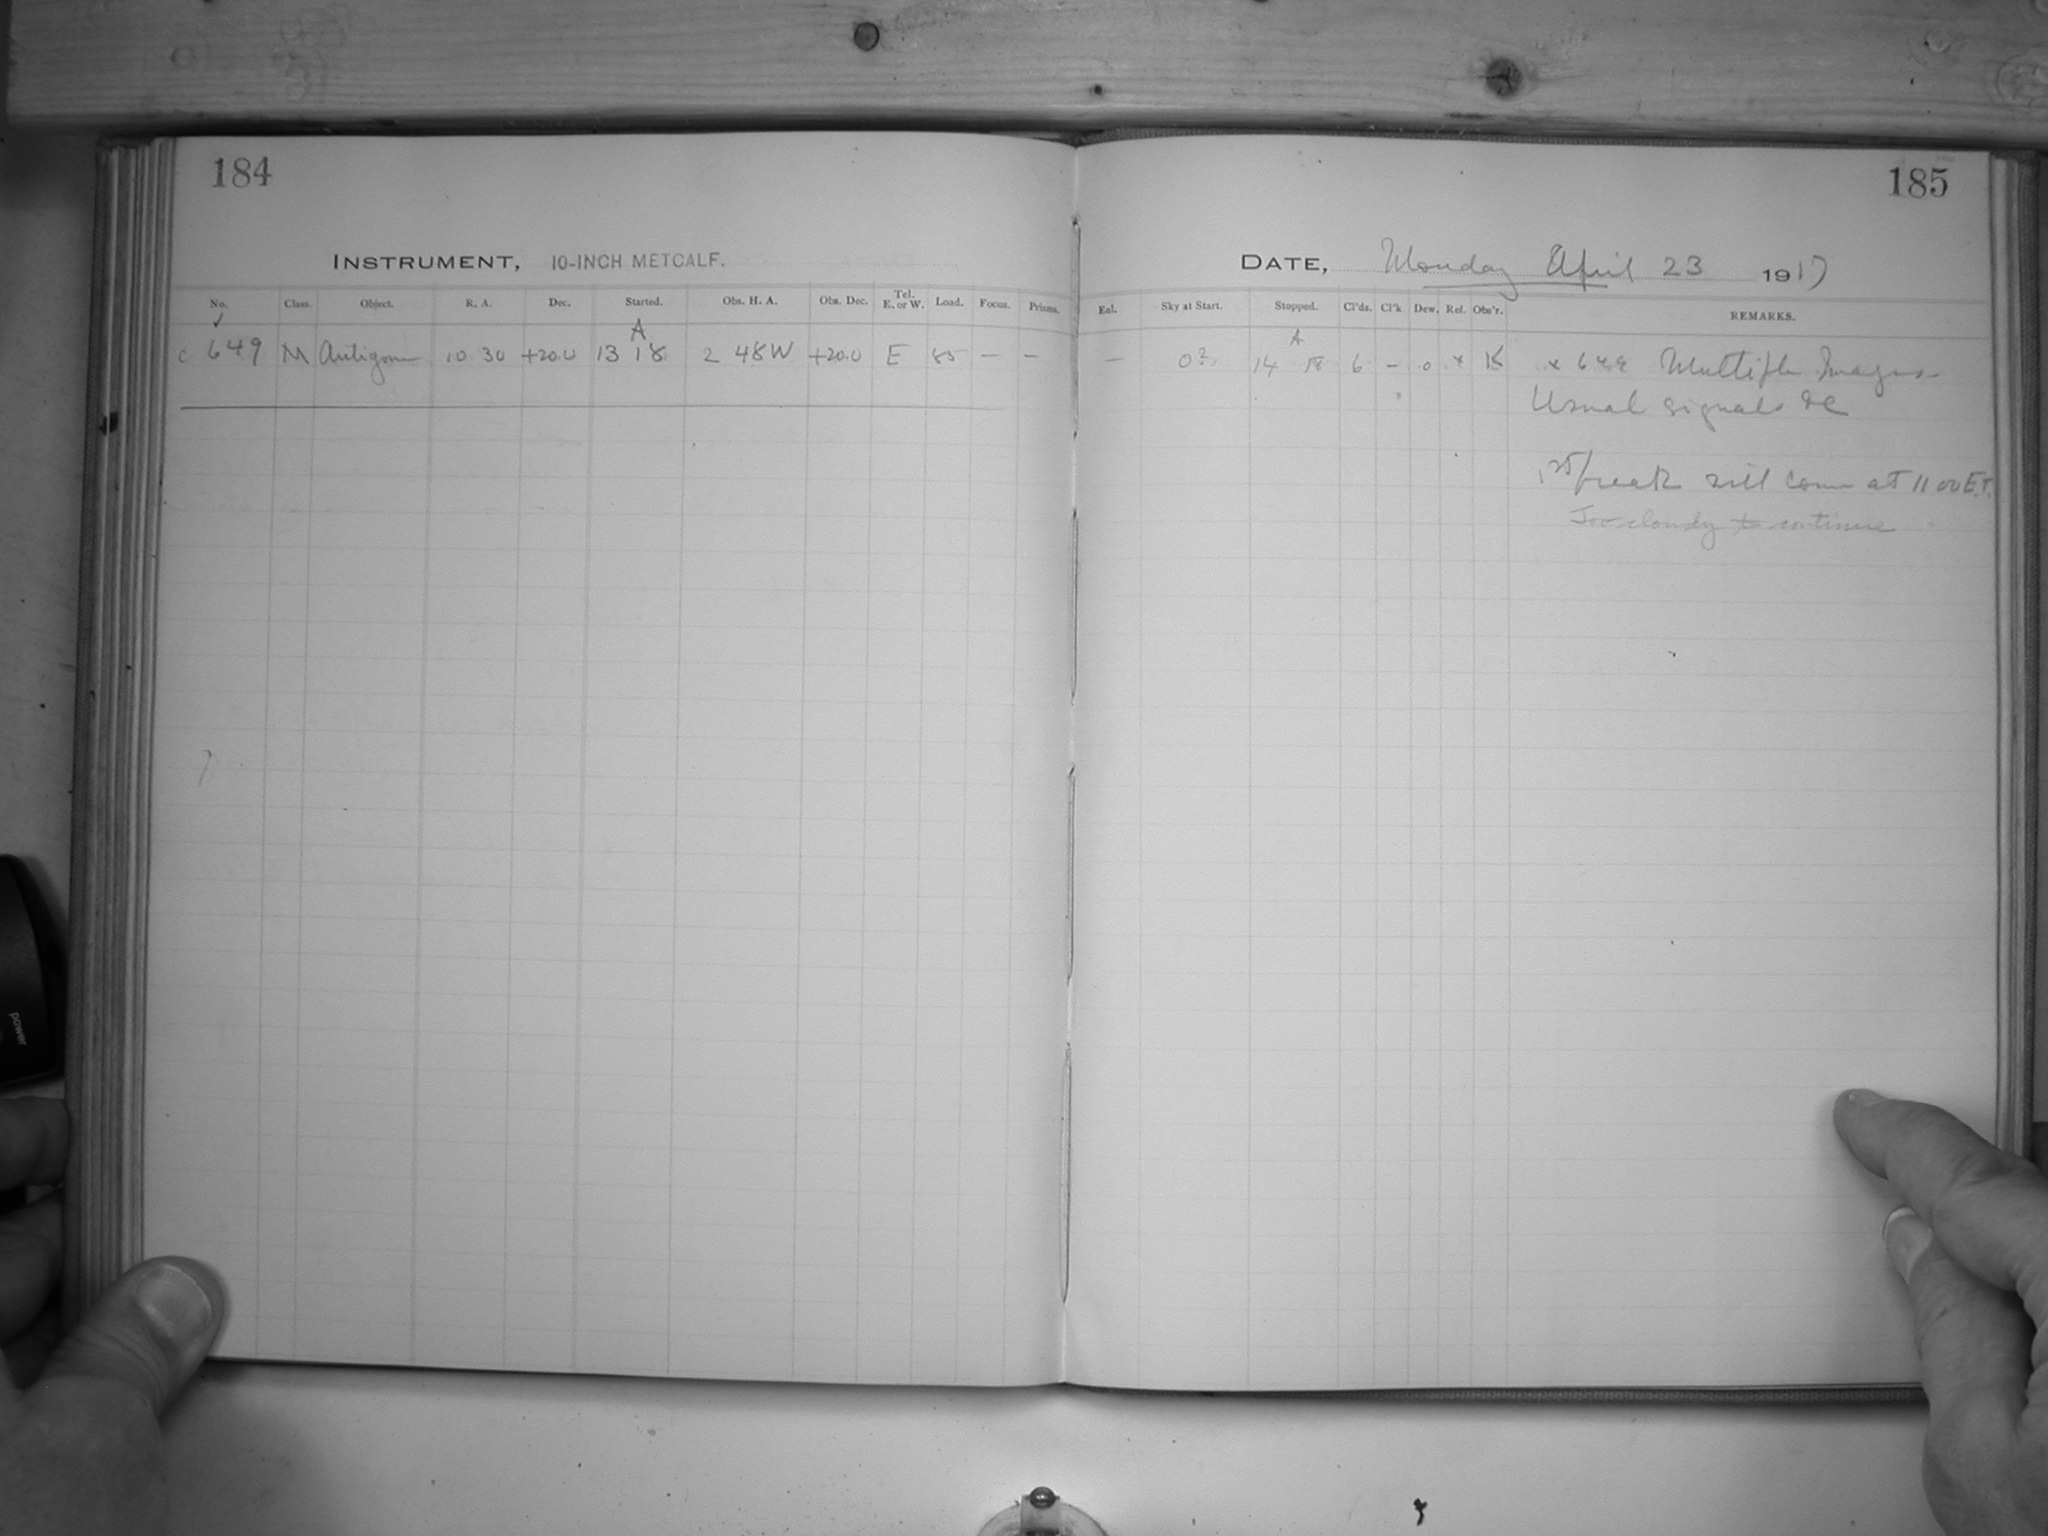 184
INSTRUMENT, 10-INCH METCALF.
No. Class. Object. R. A. Dec. Started. Obs. H. A. Obs. Dec. Tel. E. or W. Load. Focus. Prisms.
✓ A
c 649 M Antigone 10 30 +20.0 13 18 2 48W +20.0 E 85 — —
185
DATE, Monday April 23 1917
Eal. Sky at Start. Stopped. Cl'ds. Cl'k Dew. Ref. Obs'r. REMARKS.
A
— 0?. 14 18 6 - 0 x K x 649 Multiple Images
Usual signals &c
1st break will come at 11 00 E.T.
Too cloudy to continue
power